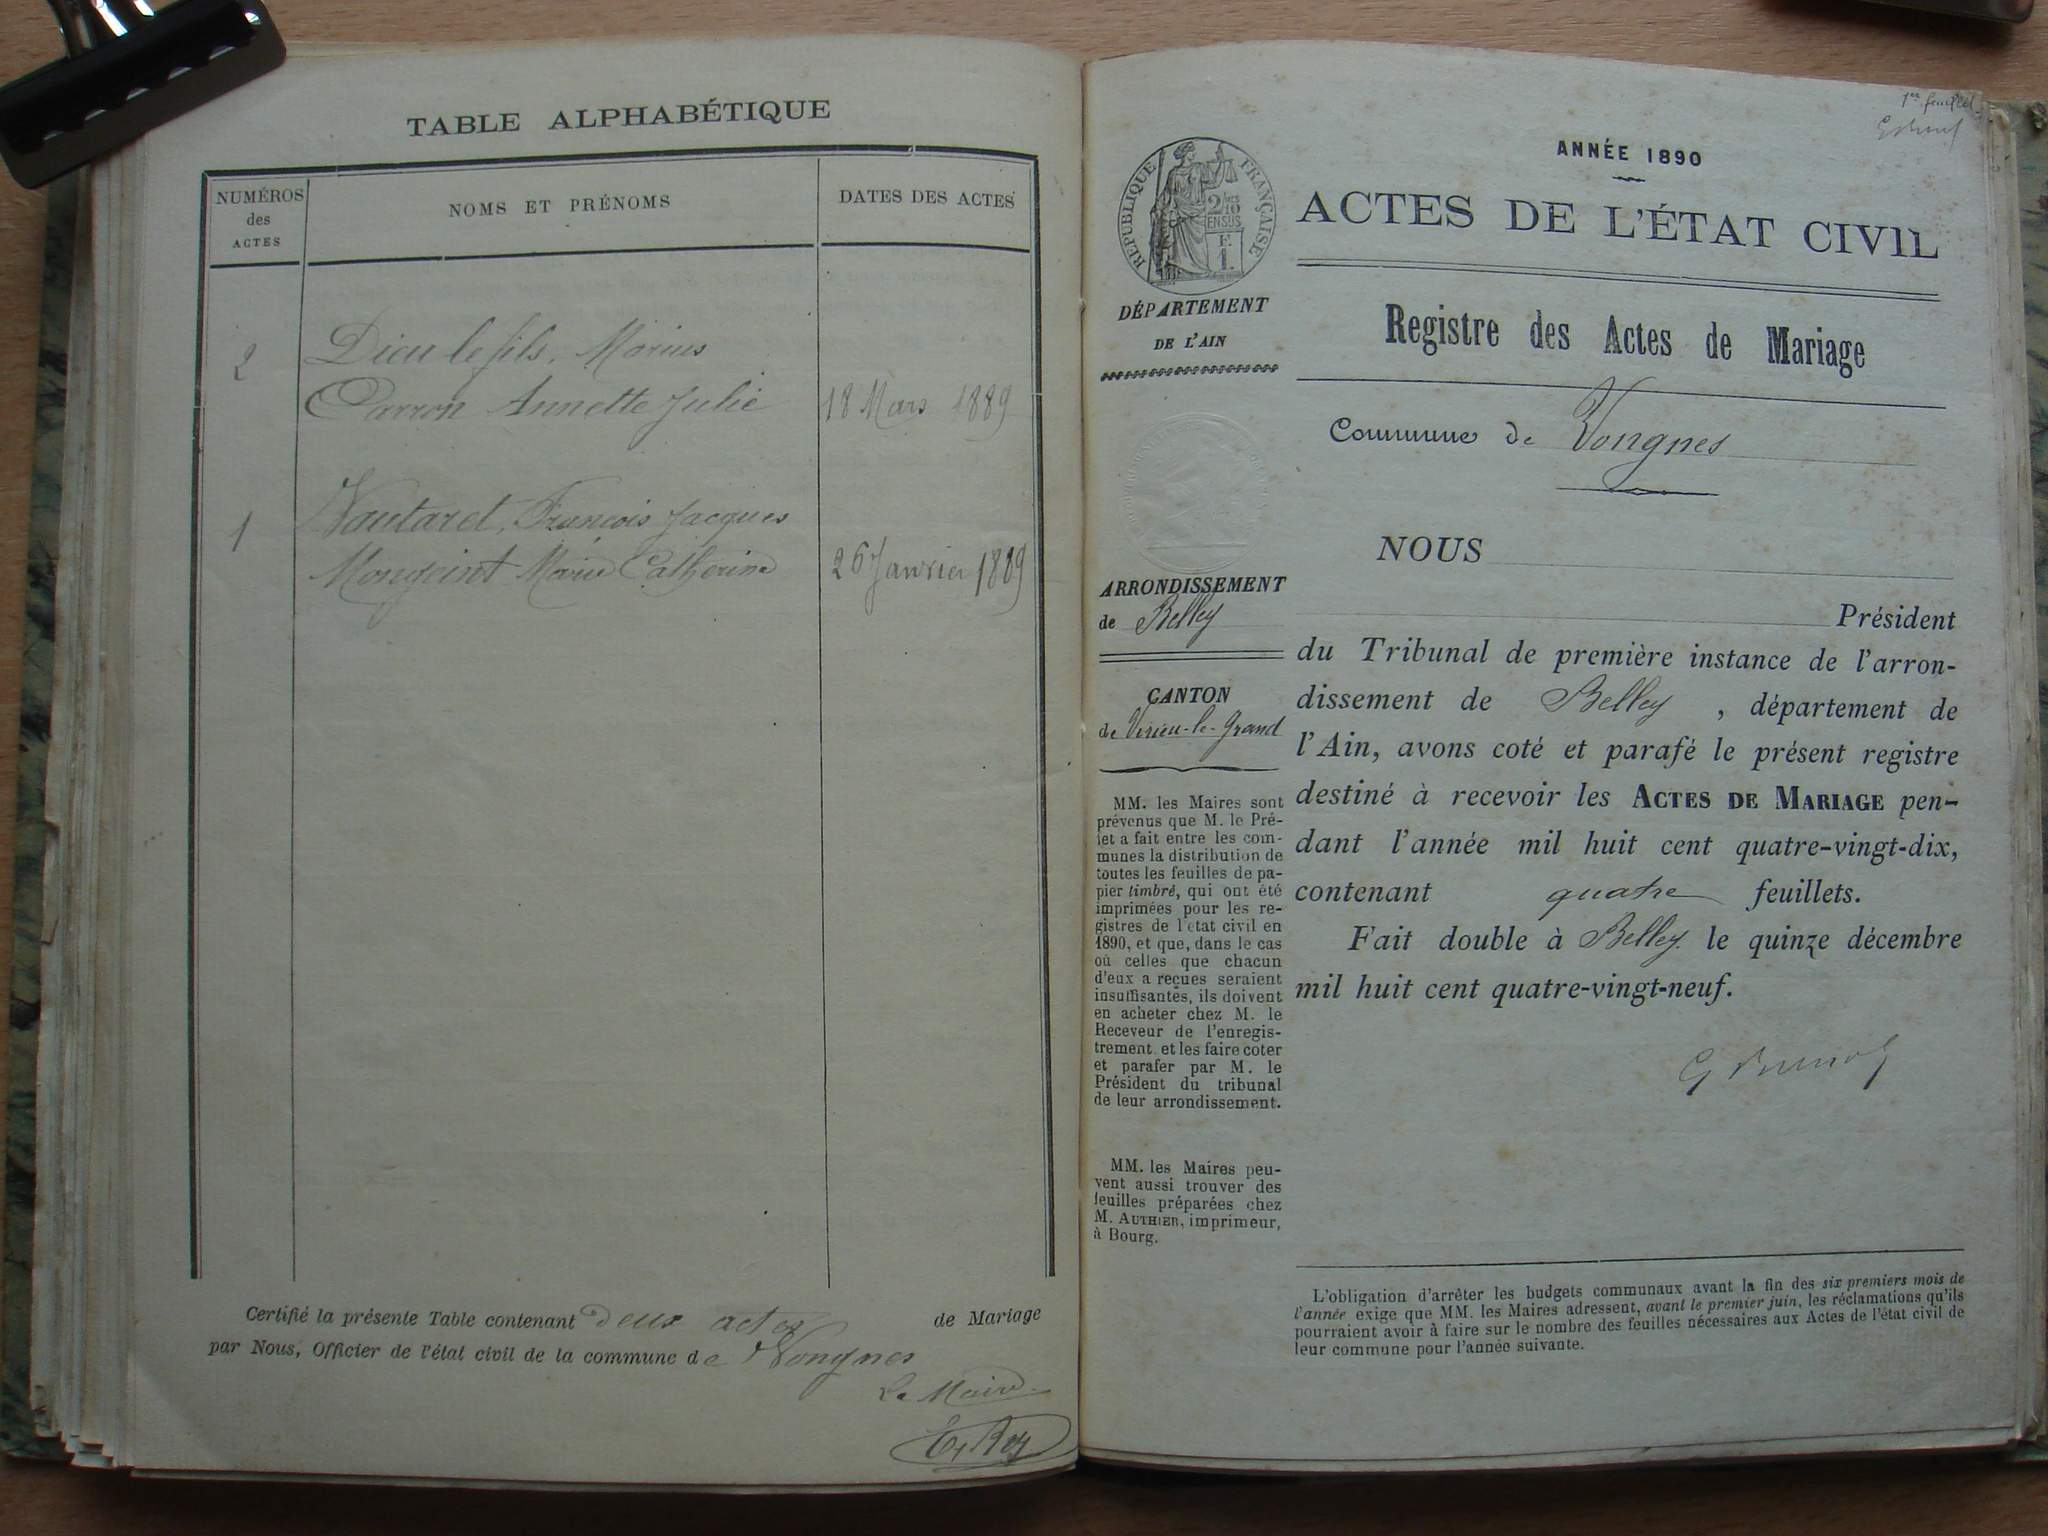 TABLE ALPHABÉTIQUE
NUMÉROS des ACTES
NOMS ET PRÉNOMS
DATES DES ACTES
2
Dieu le fils, Marius
Carron Annette Julie 18 Mars 1889
1
Vautaret, François Jacques
Mongeint Marie Catherine 26 Janvier 1889
Certifié la présente Table contenant deux actes de Mariage
par Nous, Officier de l'état civil de la commune de Vongnes
Le Maire
E. Roy
1er feuillet
ANNÉE 1890
ACTES DE L'ÉTAT CIVIL
RÉPUBLIQUE FRANÇAISE
2/10
EN SUS
F.
1.
DÉPARTEMENT
DE L'AIN
Registre des Actes de Mariage
Commune de Vongnes
ARRONDISSEMENT
de Belley
CANTON
de Virieu-le-Grand
MM. les Maires sont
prévenus que M. le Pré-
fet a fait entre les com-
munes la distribution de
toutes les feuilles de pa-
pier timbré, qui ont été
imprimées pour les re-
gistres de l'état civil en
1890, et que, dans le cas
où celles que chacun
d'eux a reçues seraient
insuffisantes, ils doivent
en acheter chez M. le
Receveur de l'enregis-
trement et les faire coter
et parafer par M. le
Président du tribunal
de leur arrondissement.
MM. les Maires peu-
vent aussi trouver des
feuilles préparées chez
M. AUTHIER, imprimeur,
à Bourg.
NOUS
Président
du Tribunal de première instance de l'arron-
dissement de Belley, département de
l'Ain, avons coté et parafé le présent registre
destiné à recevoir les ACTES DE MARIAGE pen-
dant l'année mil huit cent quatre-vingt-dix,
contenant quatre feuillets.
Fait double à Belley le quinze décembre
mil huit cent quatre-vingt-neuf.
L'obligation d'arrêter les budgets communaux avant la fin des six premiers mois de
l'année exige que MM. les Maires adressent, avant le premier juin, les réclamations qu'ils
pourraient avoir à faire sur le nombre des feuilles nécessaires aux Actes de l'état civil de
leur commune pour l'année suivante.